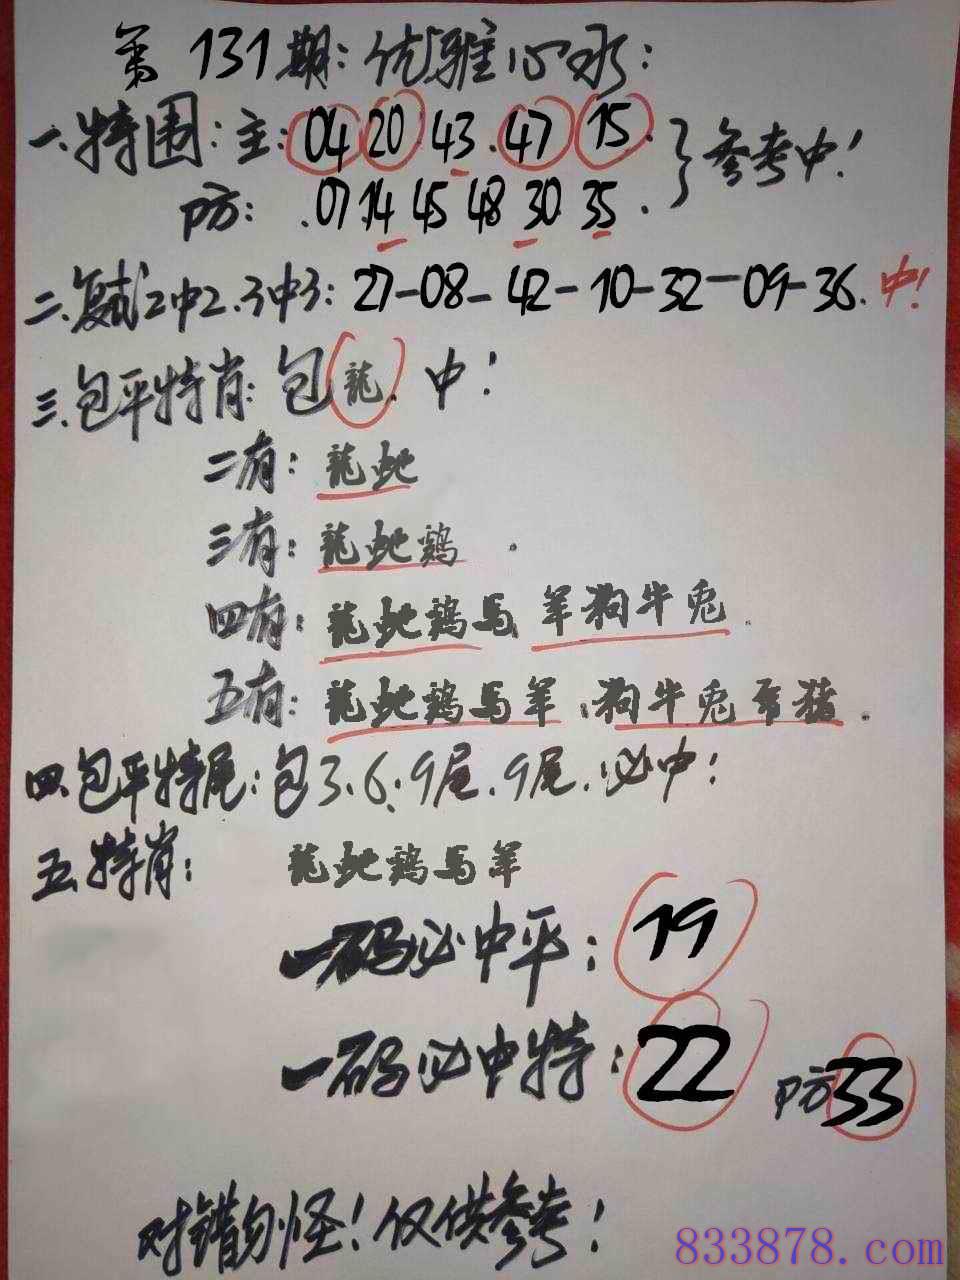 第131期:优雅心水:
一.特围:主:04 20 43.47 15.}参考中!
防: .07.14 45 48 30 35.
二.复试2中2.3中3: 27-08-42-10-32-09-36.中!
三.包平特肖:包龍.中!
二有:龍虵
三有:龍虵鷄.
四有:龍虵鷄馬.羊狗牛兔.
五有:龍虵鷄馬羊.狗牛兔 猪.
四.包平特尾:包3.6.9尾.9尾.必中!
五.特肖: 龍虵鷄馬羊
一码必中平: 19
一码必中特: 22 防33
对错勿怪!仅供参考!
833878.com